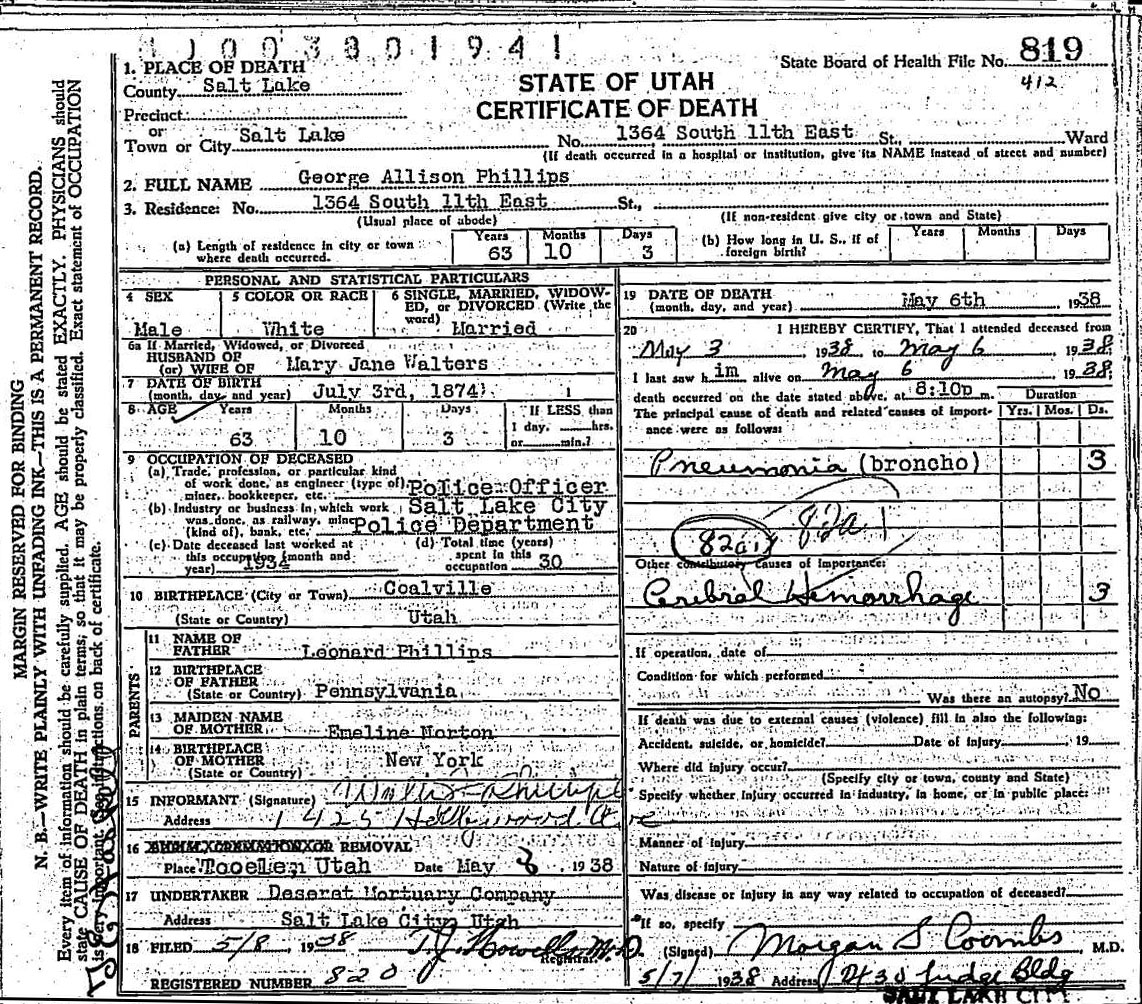 1 0 0 3 8 0 1 9 4 1
State Board of Health File No. 819
412
STATE OF UTAH
CERTIFICATE OF DEATH
1. PLACE OF DEATH
County Salt Lake
Precinct
or
Town or City Salt Lake No. 1364 South 11th East St., Ward
(If death occurred in a hospital or institution, give its NAME instead of street and number)
2. FULL NAME George Allison Phillips
3. Residence: No. 1364 South 11th East St.,
(Usual place of abode) (If non-resident give city or town and State)
(a) Length of residence in city or town where death occurred. Years 63 Months 10 Days 3
(b) How long in U. S., if of foreign birth? Years Months Days
PERSONAL AND STATISTICAL PARTICULARS
4 SEX Male
5 COLOR OR RACE White
6 SINGLE, MARRIED, WIDOWED, or DIVORCED (Write the word) Married
6a If Married, Widowed, or Divorced
HUSBAND OF
(or) WIFE OF Mary Jane Walters
7 DATE OF BIRTH
(month, day, and year) July 3rd, 1874
8 AGE Years 63 Months 10 Days 3
If LESS than
1 day, hrs.
or min.?
9 OCCUPATION OF DECEASED
(a) Trade, profession, or particular kind
of work done, as engineer (type of)
miner, bookkeeper, etc. Police Officer
(b) Industry or business in which work Salt Lake City
was done, as railway, mine
(kind of), bank, etc. Police Department
(c) Date deceased last worked at
this occupation (month and
year) 1934
(d) Total time (years)
spent in this
occupation 30
10 BIRTHPLACE (City or Town) Coalville
(State or Country) Utah
PARENTS
11 NAME OF
FATHER Leonard Phillips
12 BIRTHPLACE
OF FATHER
(State or Country) Pennsylvania
13 MAIDEN NAME
OF MOTHER Emeline Norton
14 BIRTHPLACE
OF MOTHER
(State or Country) New York
15 INFORMANT (Signature) Phillips
Address 1425 Hollywood Ave
16 BURIAL, CREMATION, OR REMOVAL
Place Tooele, Utah Date May 8, 1938
17 UNDERTAKER Deseret Mortuary Company
Address Salt Lake City, Utah
18 FILED 5/8, 1938 T.J. Howells M.D.
Registrar.
REGISTERED NUMBER 820
19 DATE OF DEATH
(month, day, and year) May 6th 1938
20 I HEREBY CERTIFY, That I attended deceased from
May 3, 1938 to May 6, 1938
I last saw him alive on May 6, 1938
death occurred on the date stated above, at 8:10p m.
Duration
The principal cause of death and related causes of importance were as follows: Yrs. Mos. Ds.
Pneumonia (broncho) 3
82a 1
82a
Other contributory causes of importance:
Cerebral Hemorrhage 3
If operation, date of
Condition for which performed
Was there an autopsy? No
If death was due to external causes (violence) fill in also the following:
Accident, suicide, or homicide? Date of injury, 19
Where did injury occur?
(Specify city or town, county and State)
Specify whether injury occurred in industry, in home, or in public place:
Manner of injury
Nature of injury
Was disease or injury in any way related to occupation of deceased?
If so, specify
(Signed) Morgan S Coombs M.D.
5/7/ 1938 Address 430 Judge Bldg
SALT LAKE CITY
MARGIN RESERVED FOR BINDING
N. B.—WRITE PLAINLY WITH UNFADING INK—THIS IS A PERMANENT RECORD.
Every item of information should be carefully supplied. AGE should be stated EXACTLY. PHYSICIANS should
state CAUSE OF DEATH in plain terms, so that it may be properly classified. Exact statement of OCCUPATION
is very important. See instructions on back of certificate.